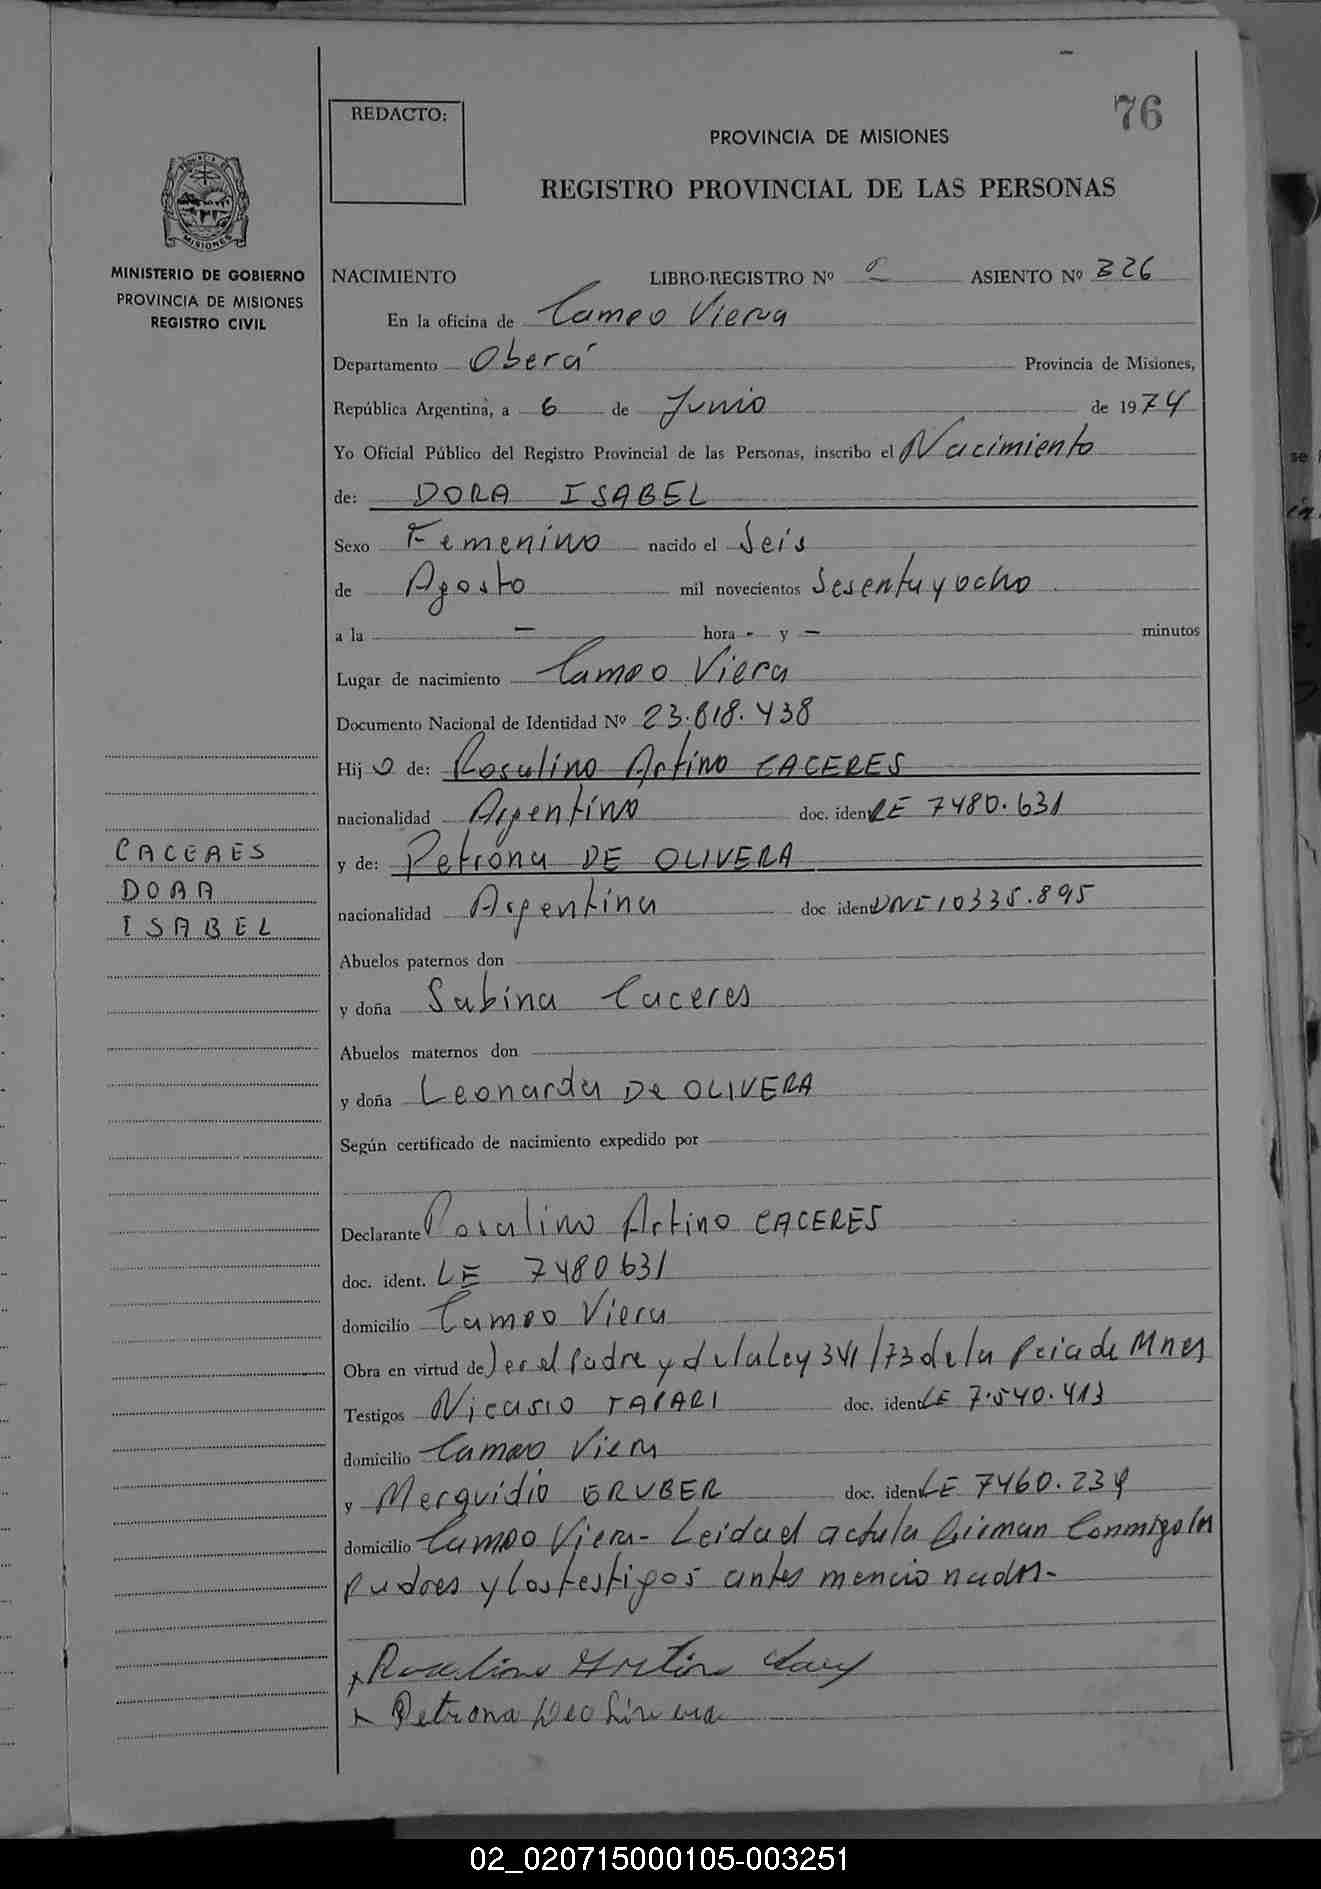 76
REDACTO:
PROVINCIA DE MISIONES
REGISTRO PROVINCIAL DE LAS PERSONAS
MISIONES
MINISTERIO DE GOBIERNO
PROVINCIA DE MISIONES
REGISTRO CIVIL
NACIMIENTO LIBRO-REGISTRO Nº ASIENTO Nº 326
En la oficina de Campo Viera
Departamento Oberá Provincia de Misiones,
República Argentina, a 6 de Junio de 1974
Yo Oficial Público del Registro Provincial de las Personas, inscribo el Nacimiento
de: DORA ISABEL
Sexo Femenino nacido el Seis
de Agosto mil novecientos Sesenta y ocho
a la — hora - y — minutos
Lugar de nacimiento Campo Viera
Documento Nacional de Identidad Nº 23.818.438
Hij o de: Rosalino Artino CACERES
nacionalidad Argentino doc. ident. LE 7480.631
y de: Petrona DE OLIVERA
nacionalidad Argentina doc ident. DNI 10335.895
CACERES
DORA
ISABEL
Abuelos paternos don
y doña Sabina Caceres
Abuelos maternos don
y doña Leonarda De OLIVERA
Según certificado de nacimiento expedido por
Declarante Rosalino Artino CACERES
doc. ident. LE 7480631
domicilio Campo Viera
Obra en virtud de ser el Padre y de la Ley 341/73 de la Pcia de Mnes
Testigos Nicasio TAPARI doc. ident. LE 7.540.413
domicilio Campo Viera
y Merquidio GRUBER doc. ident. LE 7460.239
domicilio Campo Viera - Leida el acta la firman Conmigo los
padres y los testigos antes mencionados.-
x Rosalino Artino
x Petrona De Olivera
02_020715000105-003251